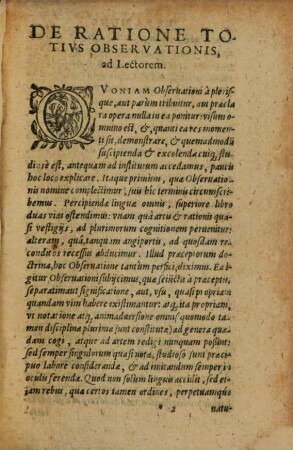 DE RATIONE TO-
TIVS OBSERVATIONIS,
ad Lectorem.
QVONIAM Obseruationi à pleris-
que, aut parum tribuitur, aut præcla
ra opera nulla in ea ponitur: visum
omnino est, &, quanti ea res momen
ti sit, demonstrare, & quemadmodū
suscipienda & excolenda cuiq, stu-
diosò est, antequam ad institutum accedamus, paucis
hoc loco explicare. Itaque primùm, qua Obseruatio-
nis nomine complectimur, suis hic terminis circumscri-
bemus. Percipiendæ linguæ omnis, superiore libro
duas vias ostendimus: vnam quà artis & rationis qua-
si vestigijs, ad plurimorum cognitionem peruenitur:
alteram, quà, tanquam angiportis, ad quosdam re-
conditos recessus abducimur. Illud præceptorum do-
ctrina, hoc Obseruatione tantùm perfici, diximus. Ea i-
gitur Obseruationi subijcimus, quæ seiuncta à præcep-
tis, separatimant significatione, aut, vsu, quasi propriam
quandam vim habere existimantur: atq, ita propriam,
vt notatione atq, animaduersione omnis quomodo ta-
men disciplinæ plurimæ sunt constitutæ) ad genera quæ-
dam cogi, atque ad artem redigi nunquam possint:
sed semper singulorum quasi nota, studioso sunt præci-
puo labore considerandæ, & ad imitandum semper in
oculis ferendæ. Quod non solùm linguis accidit, sed, et-
iam rebus, quæ certos tamen ordines, perpetuamque
* 2 natu-